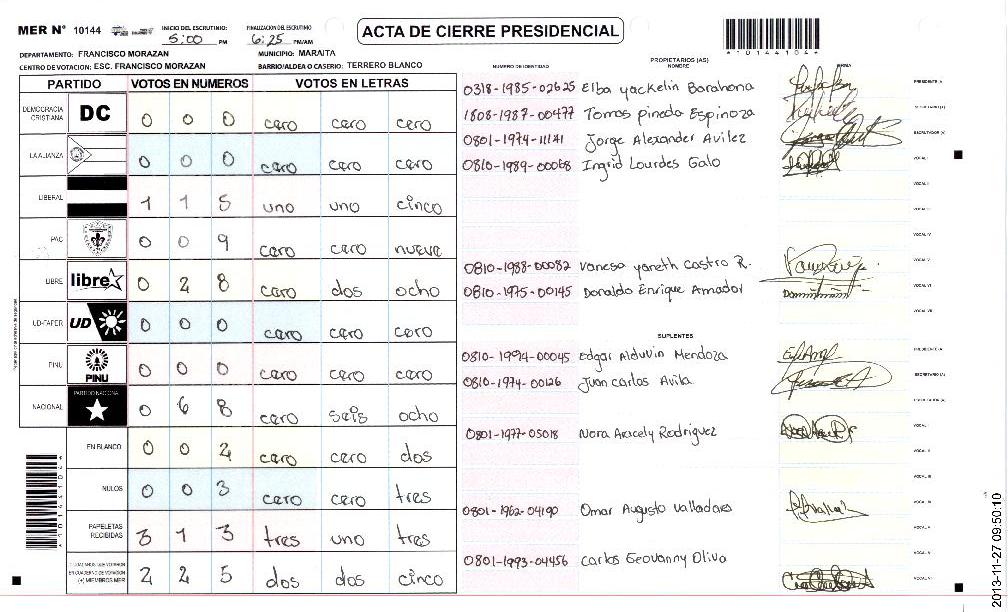 MER N° 10144
INICIO DEL ESCRUTINIO: 5:00 PM
FINALIZACION DEL ESCRUTINIO 6:25 PM/AM
ACTA DE CIERRE PRESIDENCIAL
*10144104*
DEPARTAMENTO: FRANCISCO MORAZAN
MUNICIPIO: MARAITA
CENTRO DE VOTACION: ESC. FRANCISCO MORAZAN
BARRIO/ALDEA O CASERIO: TERRERO BLANCO
PARTIDO VOTOS EN NUMEROS VOTOS EN LETRAS
DEMOCRACIA CRISTIANA DC 0 0 0 cero cero cero
LA ALIANZA 0 0 0 cero cero cero
LIBERAL 1 1 5 uno uno cinco
PAC 0 0 9 cero cero nueve
LIBRE libre 0 2 8 cero dos ocho
UD-FAPER UD 0 0 0 cero cero cero
PINU PINU 0 0 0 cero cero cero
NACIONAL PARTIDO NACIONAL 0 6 8 cero seis ocho
EN BLANCO 0 0 2 cero cero dos
NULOS 0 0 3 cero cero tres
PAPELETAS RECIBIDAS 3 1 3 tres uno tres
CIUDADANOS QUE VOTARON EN CUADERNO DE VOTACION (+) MIEMBROS MER 2 2 5 dos dos cinco
NUMERO DE IDENTIDAD PROPIETARIOS (AS) NOMBRE FIRMA
0318-1985-02625 Elba yackelin Barahona PRESIDENTE (A)
1808-1987-00477 Tomas pineda Espinoza SECRETARIO (A)
0801-1974-11141 Jorge Alexander Avilez ESCRUTADOR (A)
0816-1989-00068 Ingrid Lourdes Galo VOCAL I
VOCAL II
VOCAL III
VOCAL IV
0810-1988-00082 Vanesa yaneth castro R. VOCAL V
0810-1975-00145 Donaldo Enrique Amador VOCAL VI
VOCAL VII
SUPLENTES
0810-1994-00045 Edgar Alduvin Mendoza PRESIDENTE (A)
0810-1974-00126 Juan carlos Avila SECRETARIO (A)
ESCRUTADOR (A)
0801-1977-05018 Nora Aracely Rodriguez VOCAL I
VOCAL II
VOCAL III
0801-1962-04190 Omar Augusto Valladares VOCAL IV
VOCAL V
0801-1993-04456 Carlos Geovanny Oliva
VOCAL VI
2013-11-27 09:50:10